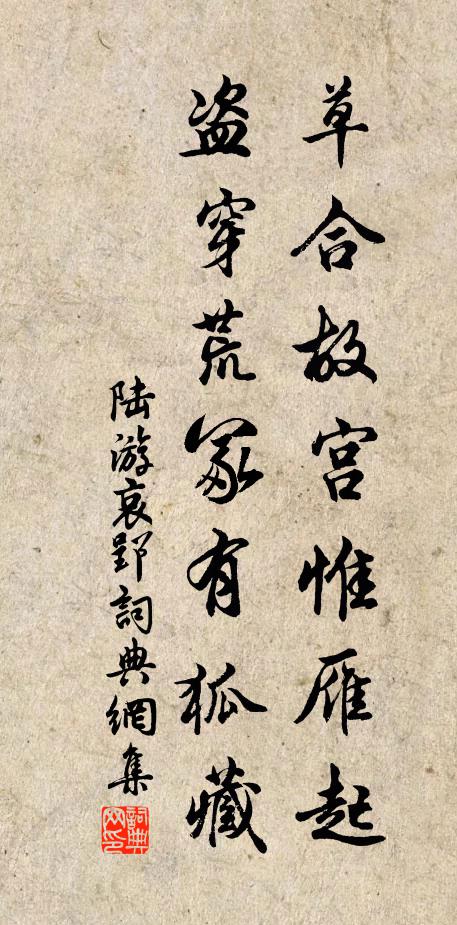 草合故宫惟雁起
盗穿荒冢有狐藏
陆游哀郢詞典網集
詞典
网印